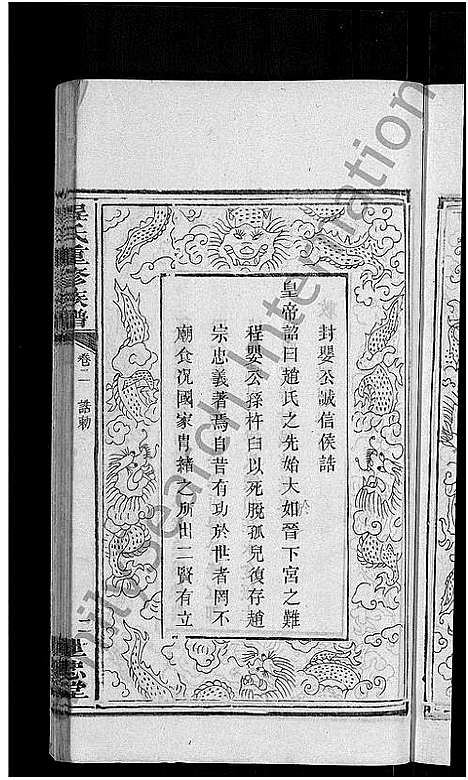 封嬰公誠信侯誥
皇帝詔曰趙氏之先始大如晉下宮之難
程嬰公孫杵臼以死脫孤兒復存趙
宗忠義著焉自昔有功於世者罔不
廟食况國家胄緒之所出二賢有立
程氏重修族譜
卷二
誥勅
忠堂